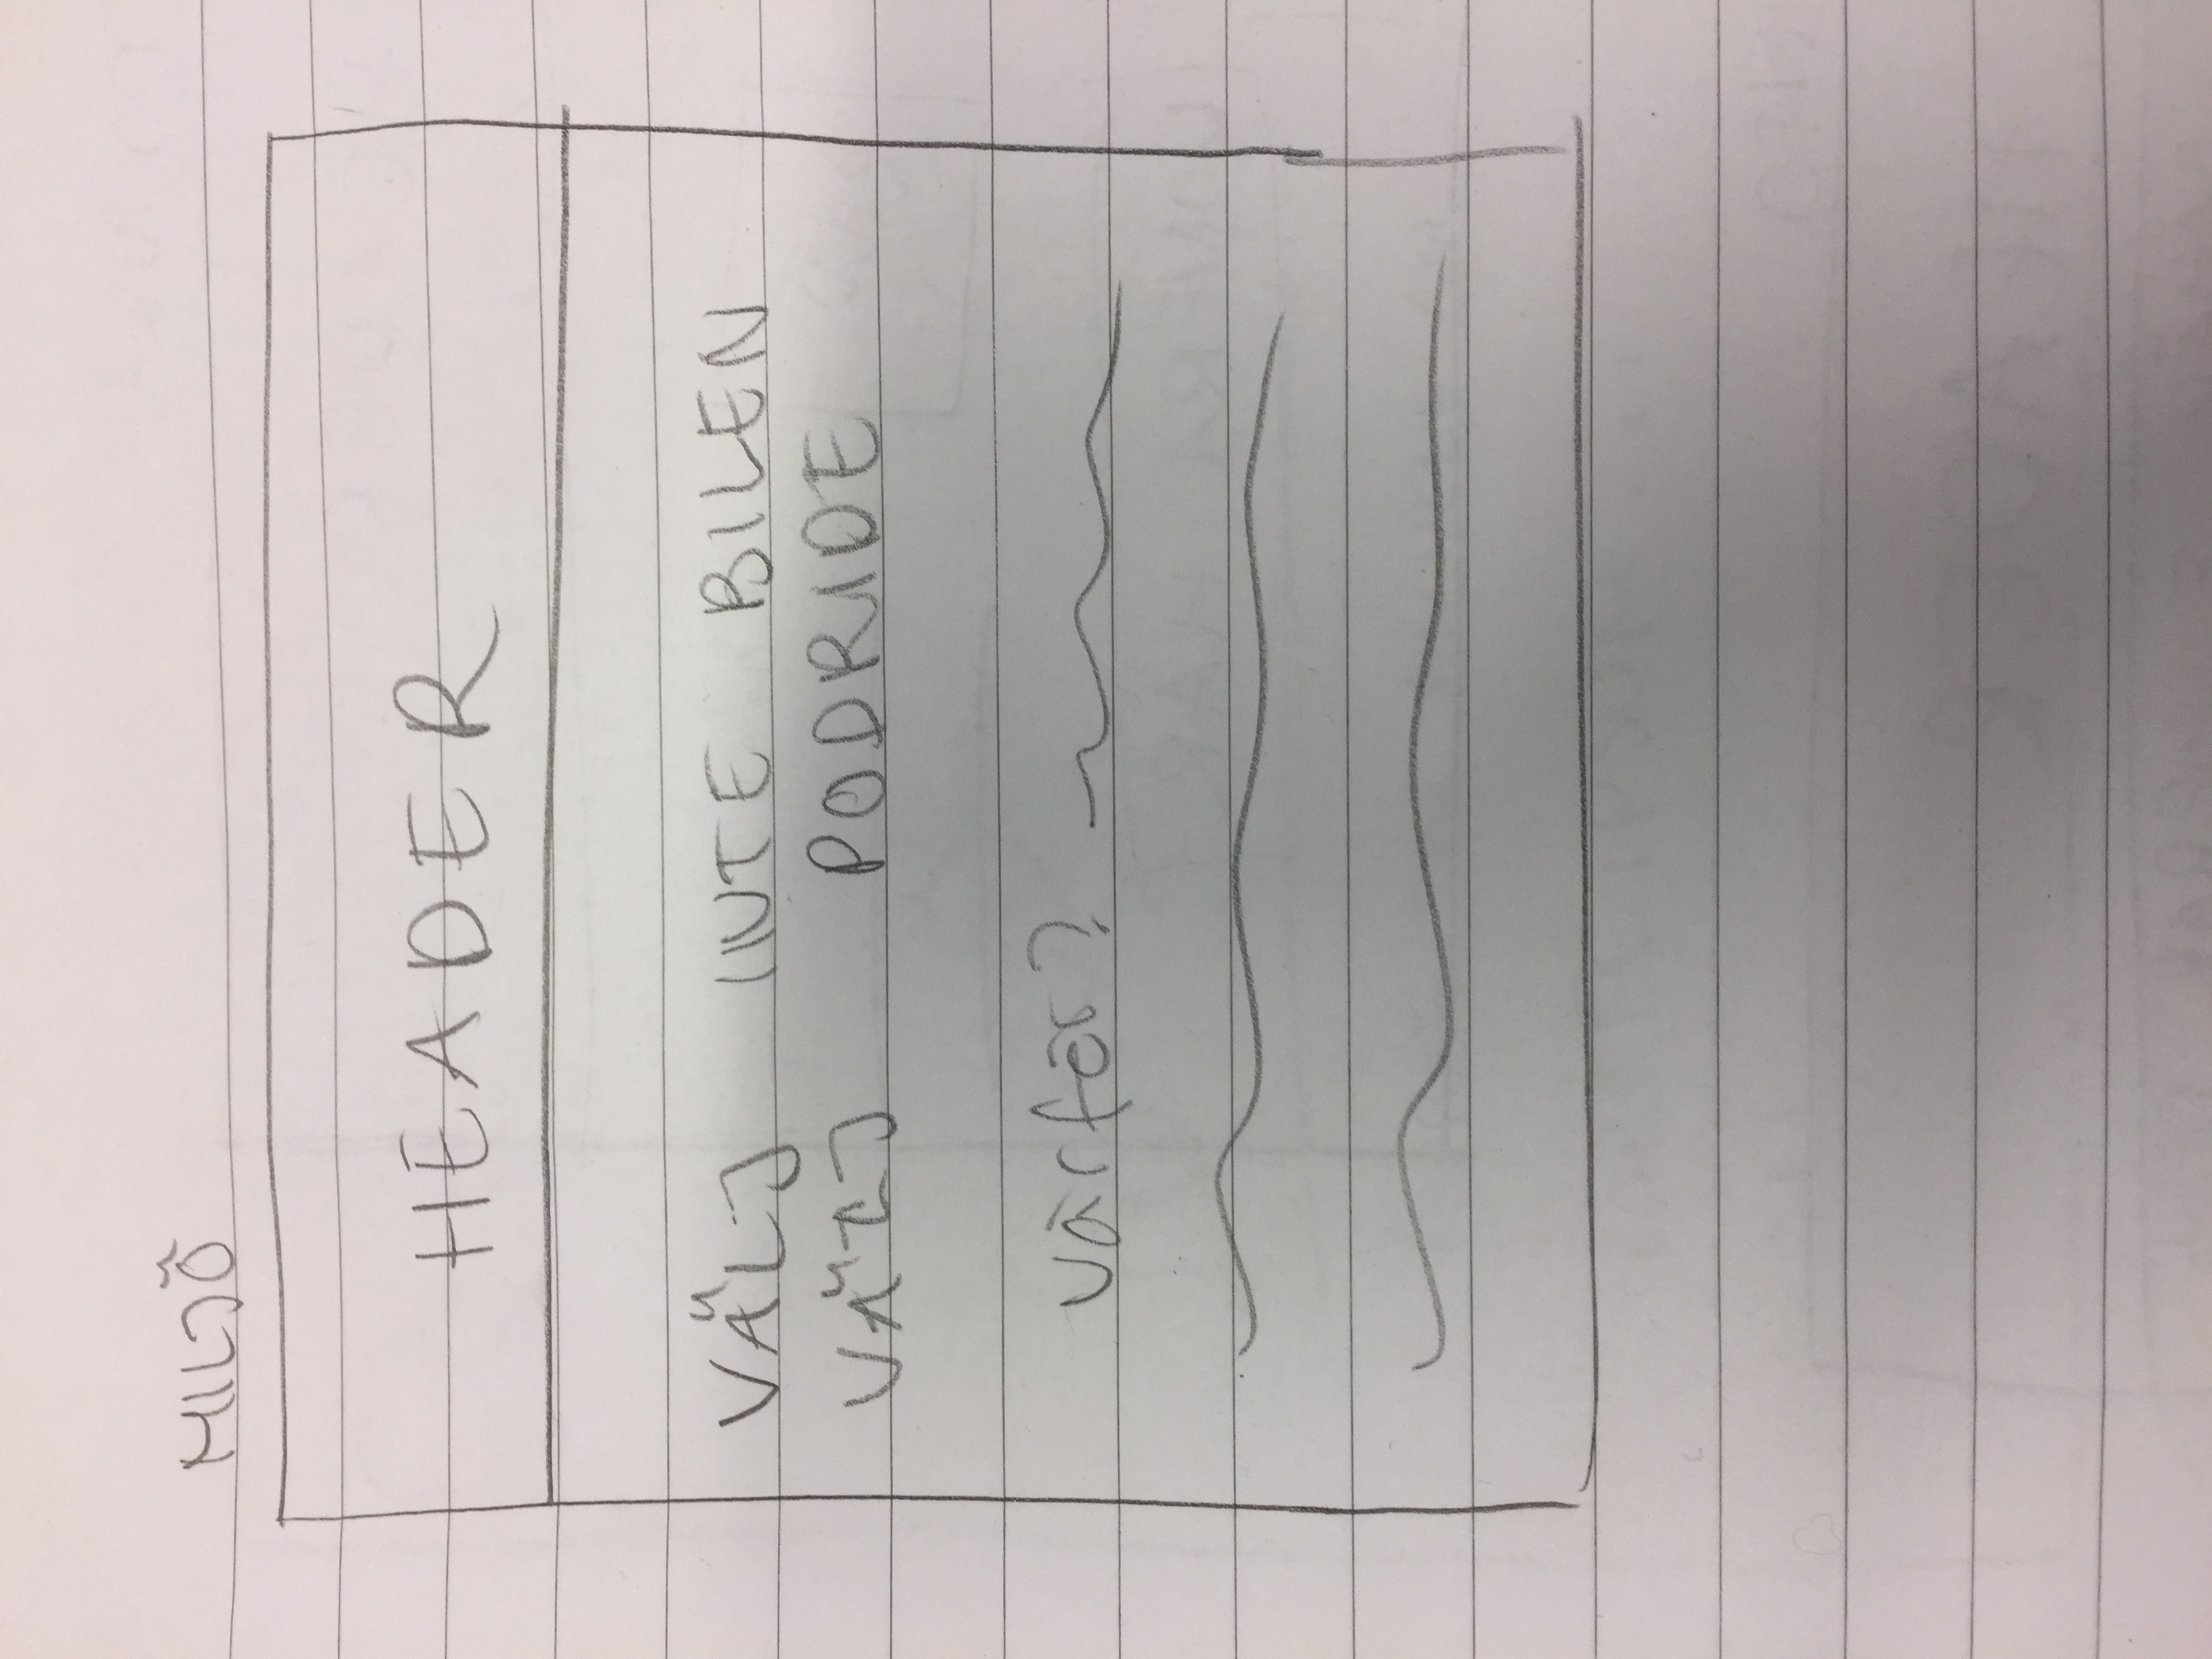 MILJÖ
HEADER
VÄLJ INTE BILEN
VÄLJ PODRIDE
Varför?